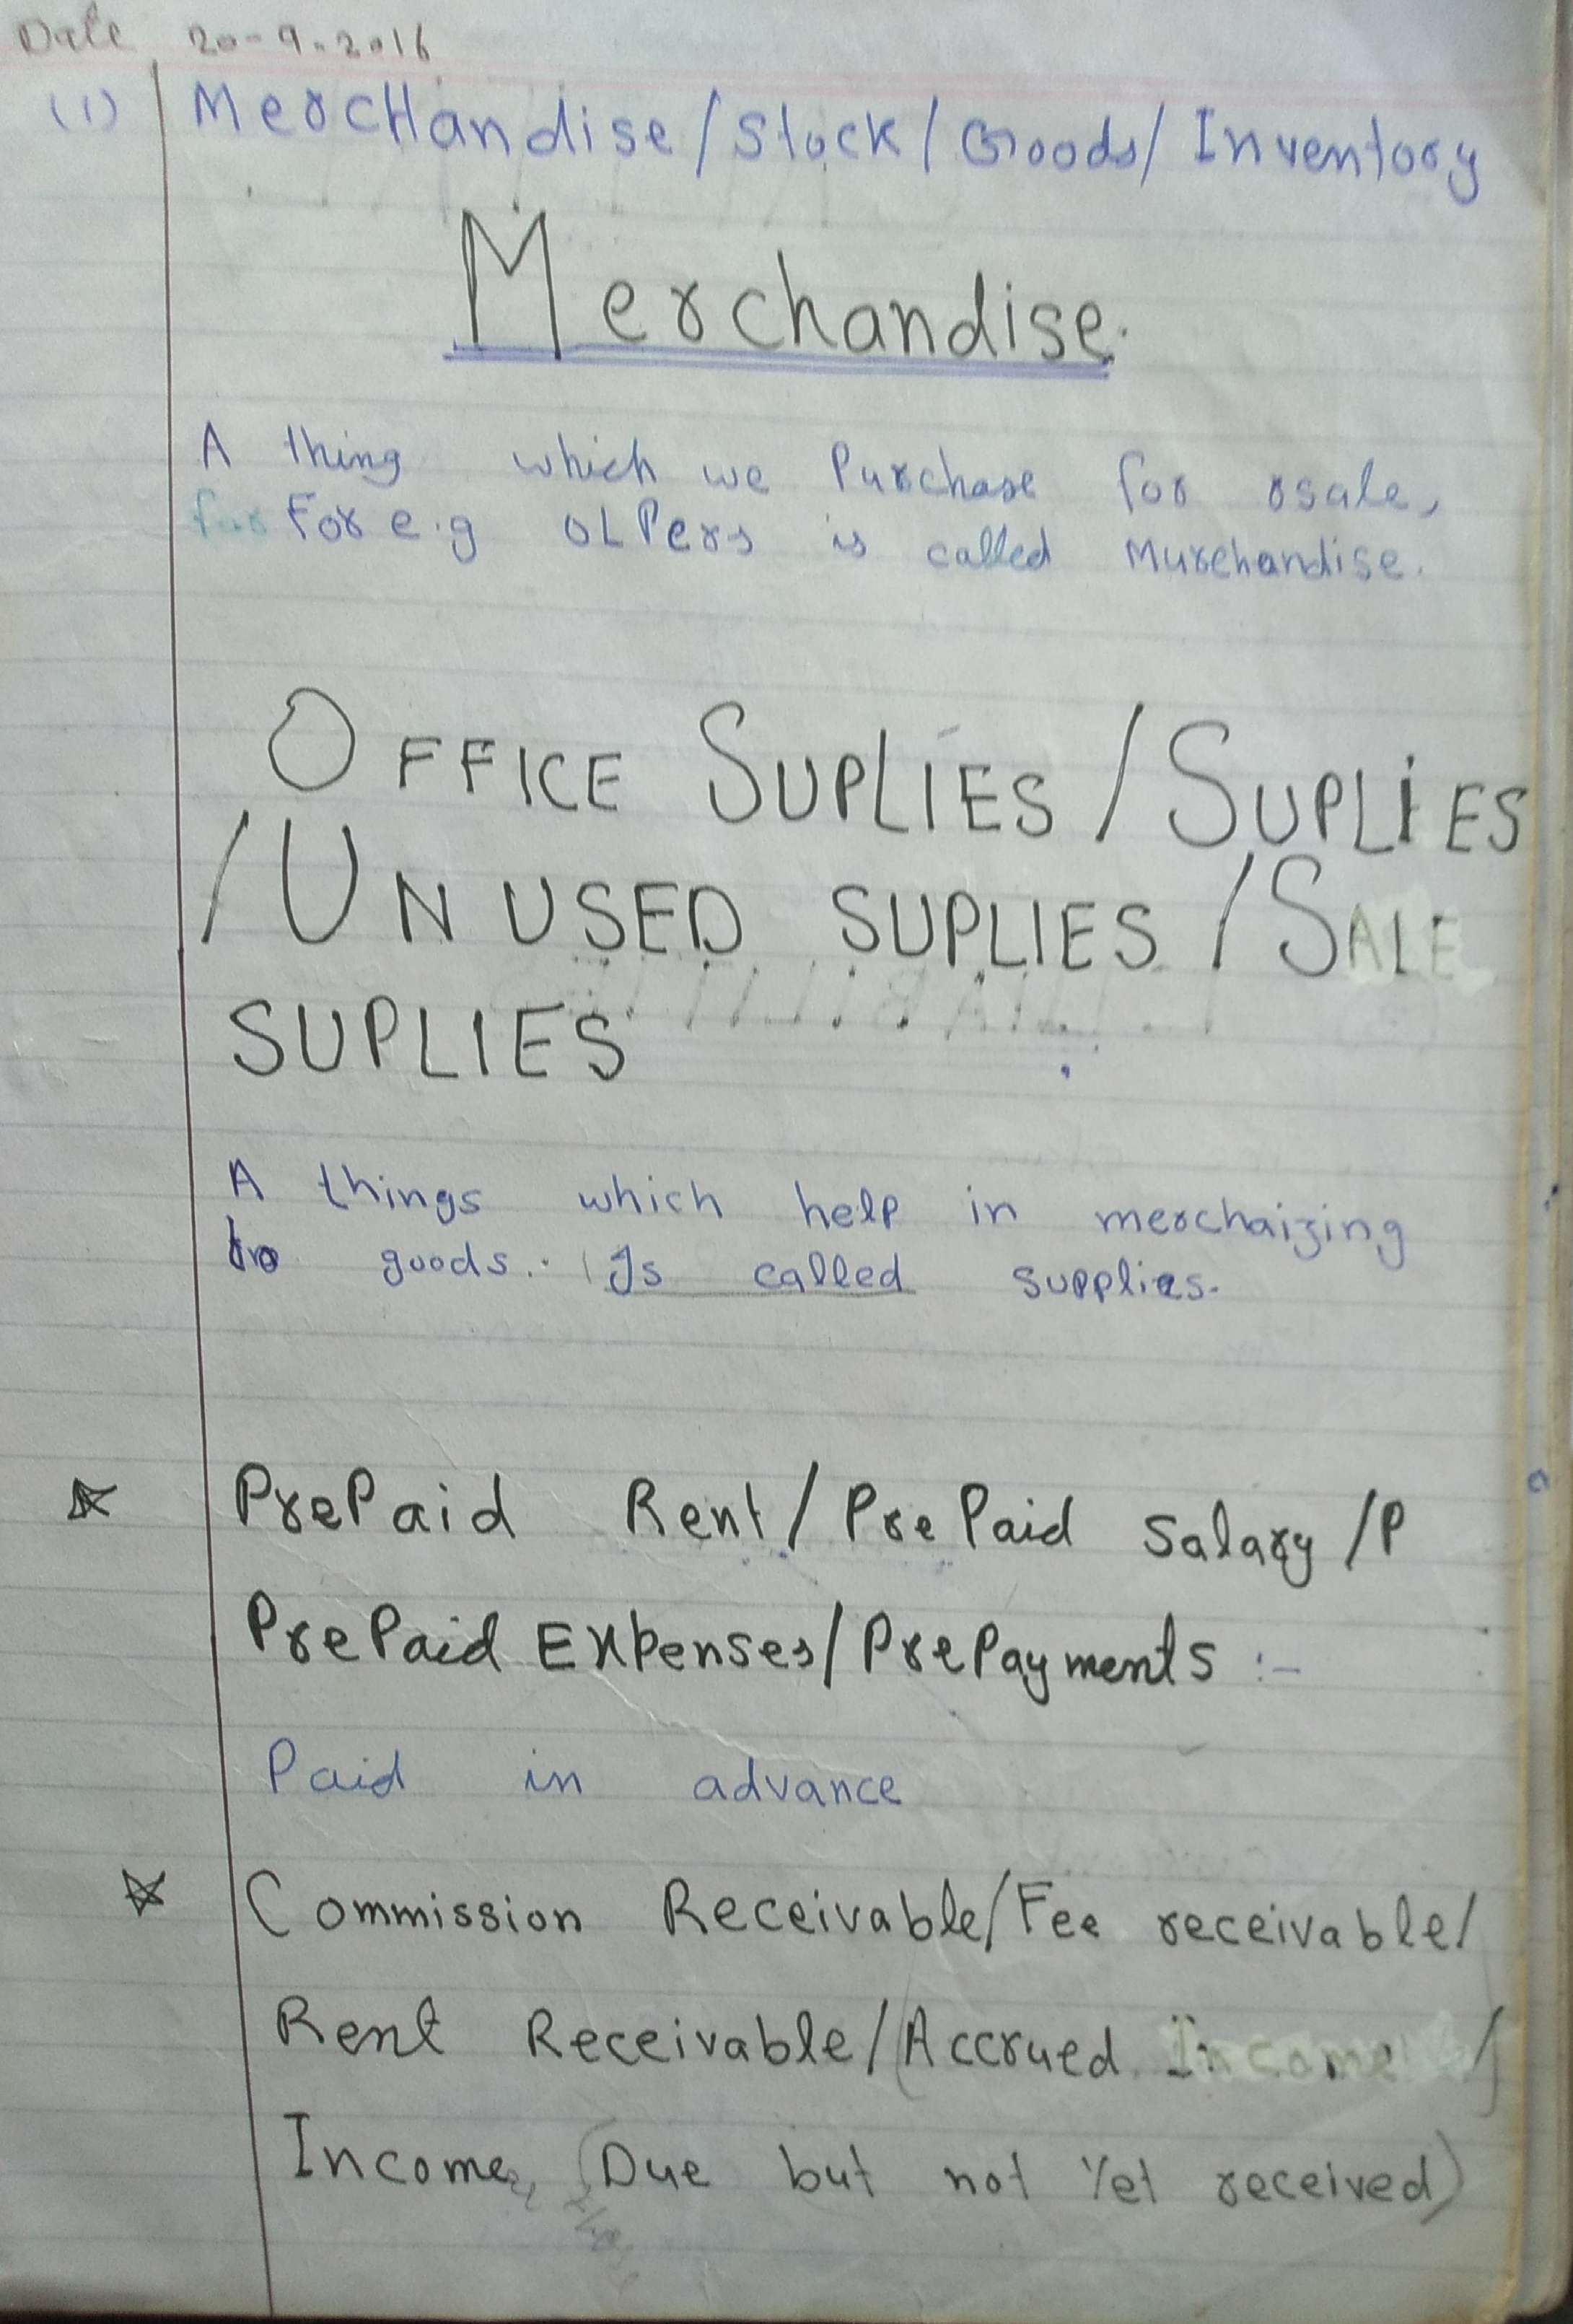 Date 20-9-2016
(1) MercHandise/Stock/Goods/Inventory
Merchandise.
A thing which we Purchase for rsale,
for For e.g OLPers is called Murchandise.
OFFICE SUPLIES/SUPLIES
/UNUSED SUPLIES/SALE
SUPLIES
A things which help in merchaizing
to goods. Is called supplies.
PrePaid Rent/PrePaid Salary/P
PrePaid Expenses/PrePayments :-
Paid in advance
Commission Receivable/Fee receivable/
Rent Receivable/(Accrued Income/
Income, (Due but not Yet received)